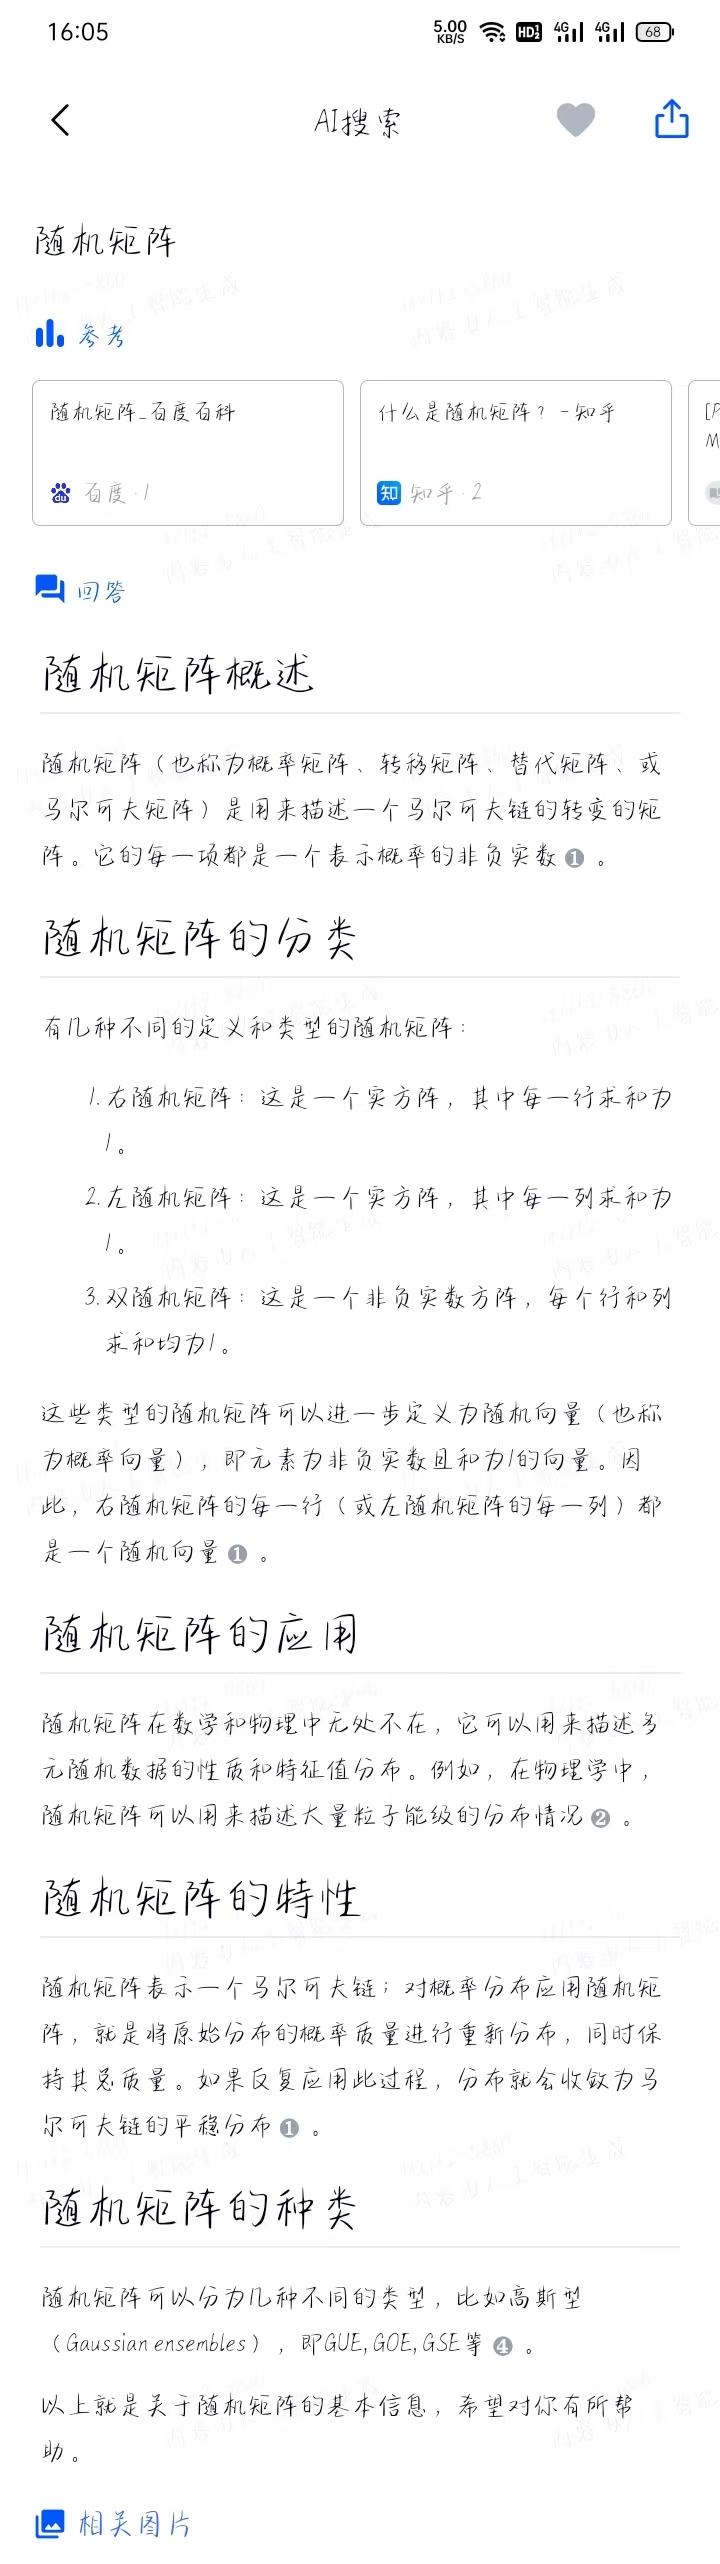 16:05
5.00
KB/S
HD
4G
4G
68
AI搜索
随机矩阵
参考
随机矩阵_百度百科
百度·1
什么是随机矩阵？ - 知乎
知乎·2
回答
随机矩阵概述
随机矩阵（也称为概率矩阵、转移矩阵、替代矩阵、或
马尔可夫矩阵）是用来描述一个马尔可夫链的转变的矩
阵。它的每一项都是一个表示概率的非负实数 1 。
随机矩阵的分类
有几种不同的定义和类型的随机矩阵：
1. 右随机矩阵：这是一个实方阵，其中每一行求和为
1。
2. 左随机矩阵：这是一个实方阵，其中每一列求和为
1。
3. 双随机矩阵：这是一个非负实数方阵，每个行和列
求和均为1。
这些类型的随机矩阵可以进一步定义为随机向量（也称
为概率向量），即元素为非负实数且和为1的向量。因
此，右随机矩阵的每一行（或左随机矩阵的每一列）都
是一个随机向量 1 。
随机矩阵的应用
随机矩阵在数学和物理中无处不在，它可以用来描述多
元随机数据的性质和特征值分布。例如，在物理学中，
随机矩阵可以用来描述大量粒子能级的分布情况 2 。
随机矩阵的特性
随机矩阵表示一个马尔可夫链；对概率分布应用随机矩
阵，就是将原始分布的概率质量进行重新分布，同时保
持其总质量。如果反复应用此过程，分布就会收敛为马
尔可夫链的平稳分布 1 。
随机矩阵的种类
随机矩阵可以分为几种不同的类型，比如高斯型
（Gaussian ensembles），即GUE, GOE, GSE等 4 。
以上就是关于随机矩阵的基本信息，希望对你有所帮
助。
相关图片